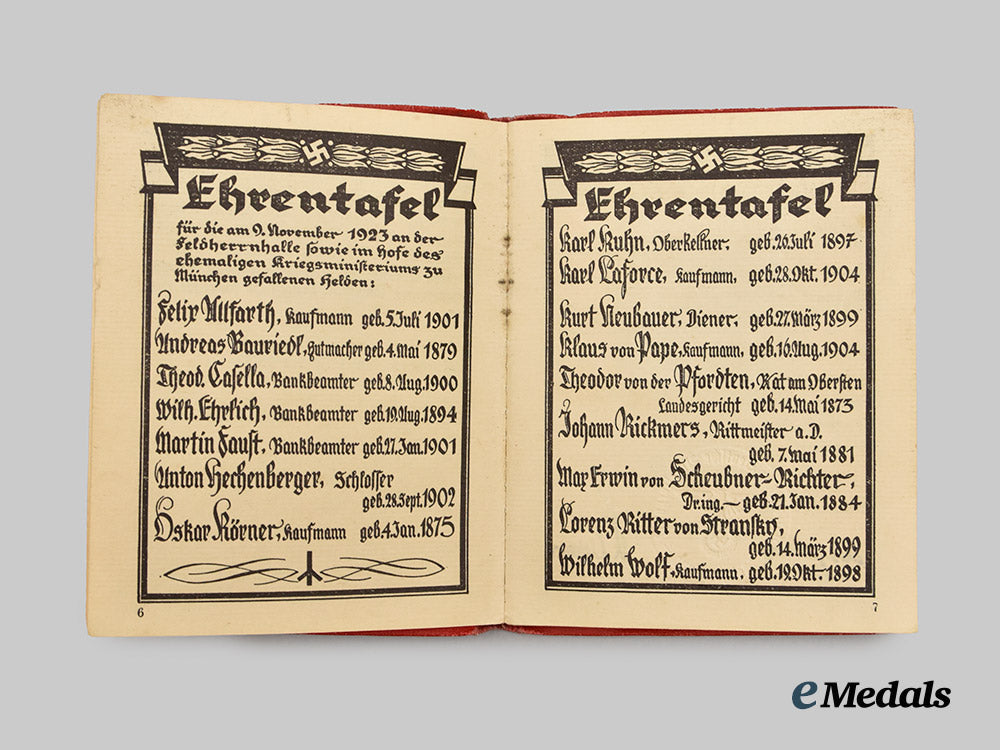 Ehrentafel
für die am 9. November 1923 an der
Feldherrnhalle sowie im Hofe des
ehemaligen Kriegsministeriums zu
München gefallenen Helden:
Felix Allfarth, Kaufmann geb. 5. Juli 1901
Andreas Bauriedl, Hutmacher geb. 4. Mai 1879
Theod. Casella, Bankbeamter geb. 8. Aug. 1900
Wilh. Ehrlich, Bankbeamter geb. 19. Aug. 1894
Martin Faust, Bankbeamter geb. 27. Jan. 1901
Anton Hechenberger, Schlosser
geb. 28. Sept. 1902
Oskar Körner, Kaufmann geb. 4. Jan. 1875
6
Ehrentafel
Karl Kuhn, Oberkellner, geb. 26. Juli 1897
Karl Laforce, Kaufmann, geb. 28. Okt. 1904
Kurt Neubauer, Diener, geb. 27. März 1899
Klaus von Pape, Kaufmann, geb. 16. Aug. 1904
Theodor von der Pfordten, Rat am Obersten
Landesgericht geb. 14. Mai 1873
Johann Rickmers, Rittmeister a.D.
geb. 7. Mai 1881
Max Erwin von Scheubner-Richter,
Dr. ing. – geb. 21. Jan. 1884
Lorenz Ritter von Stransky,
geb. 14. März 1899
Wilhelm Wolf, Kaufmann, geb. 19. Okt. 1898
7
eMedals